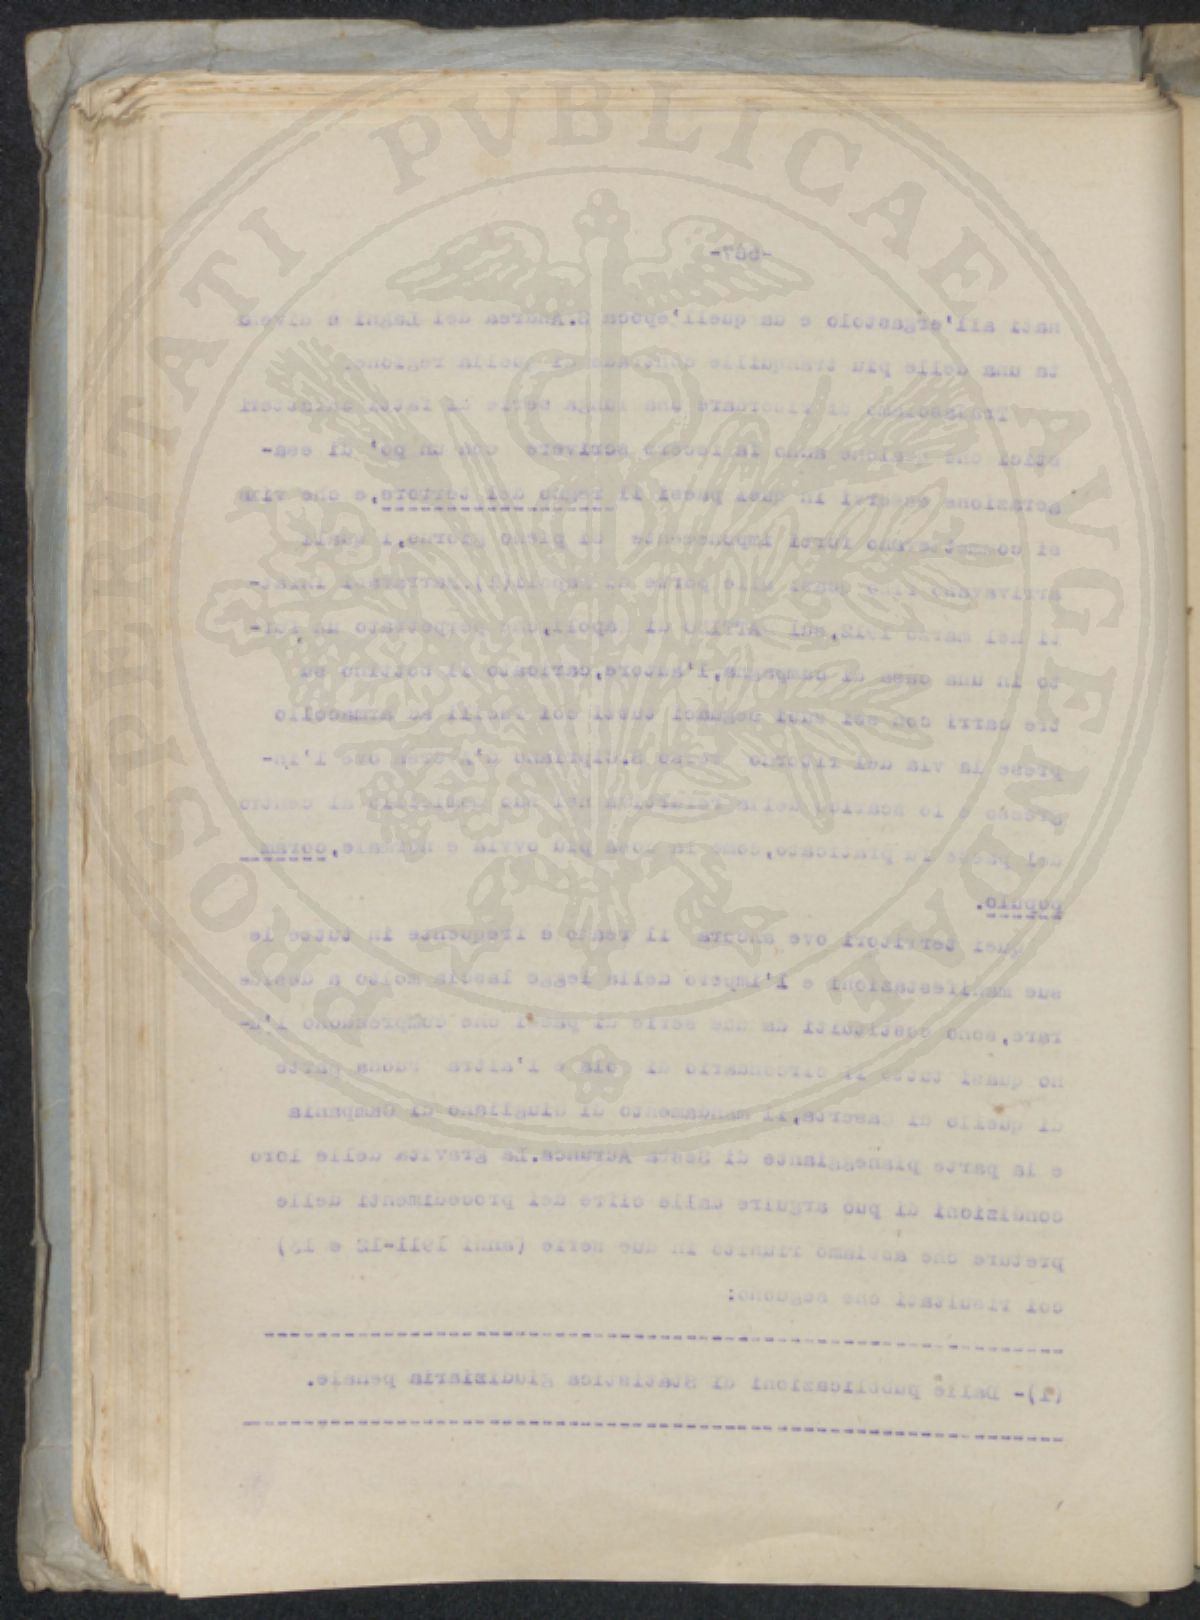 PROSPERITATI PVBLICAE AVGENDAE
-567-
nati all'ergastolo e da quell'epoca S.Andrea dei Lagni è diven
ta una delle più tranquille contrade di quella regione.
Tralasciamo di ricordare una lunga serie di fatti caratteri
stici che qualche anno fa fecero scrivere con un po' di esa-
gerazione esservi in quei paesi il regno del terrore, e che vi
si commettevano furti impunemente di pieno giorno, i quali
arrivavano fino quasi alle porte di Napoli(1).
ti nel marzo 1912, sul di Napoli, perpetrato un fur-
to in una casa di campagna, l'autore, caricato il bottino su
tre carri con sei suoi seguaci tutti coi fucili ad armacollo
prese la via del ritorno verso S.Cipriano d'Aversa ove l'in-
gresso e lo scarico della refurtiva nel suo domicilio al centro
del paese fu praticato, come la cosa più ovvia e normale, coram
populo.
Quei territori ove ancora il reato è frequente in tutte le
sue manifestazioni e l'impero della legge lascia molto a deside
rare, sono costituiti da due serie di paesi che comprendono l'u-
no quasi tutto il circondario di Nola e l'altra buona parte
di quello di Caserta, il mandamento di Giugliano di Campania
e la parte pianeggiante di Sessa Aurunca. La gravità delle loro
condizioni di può arguire dalle cifre dei procedimenti delle
preture che abbiamo riunito in due serie (anni 1911-12 e 13)
coi risultati che seguono:
(1)- Dalle pubblicazioni di Statistica giudiziaria penale.